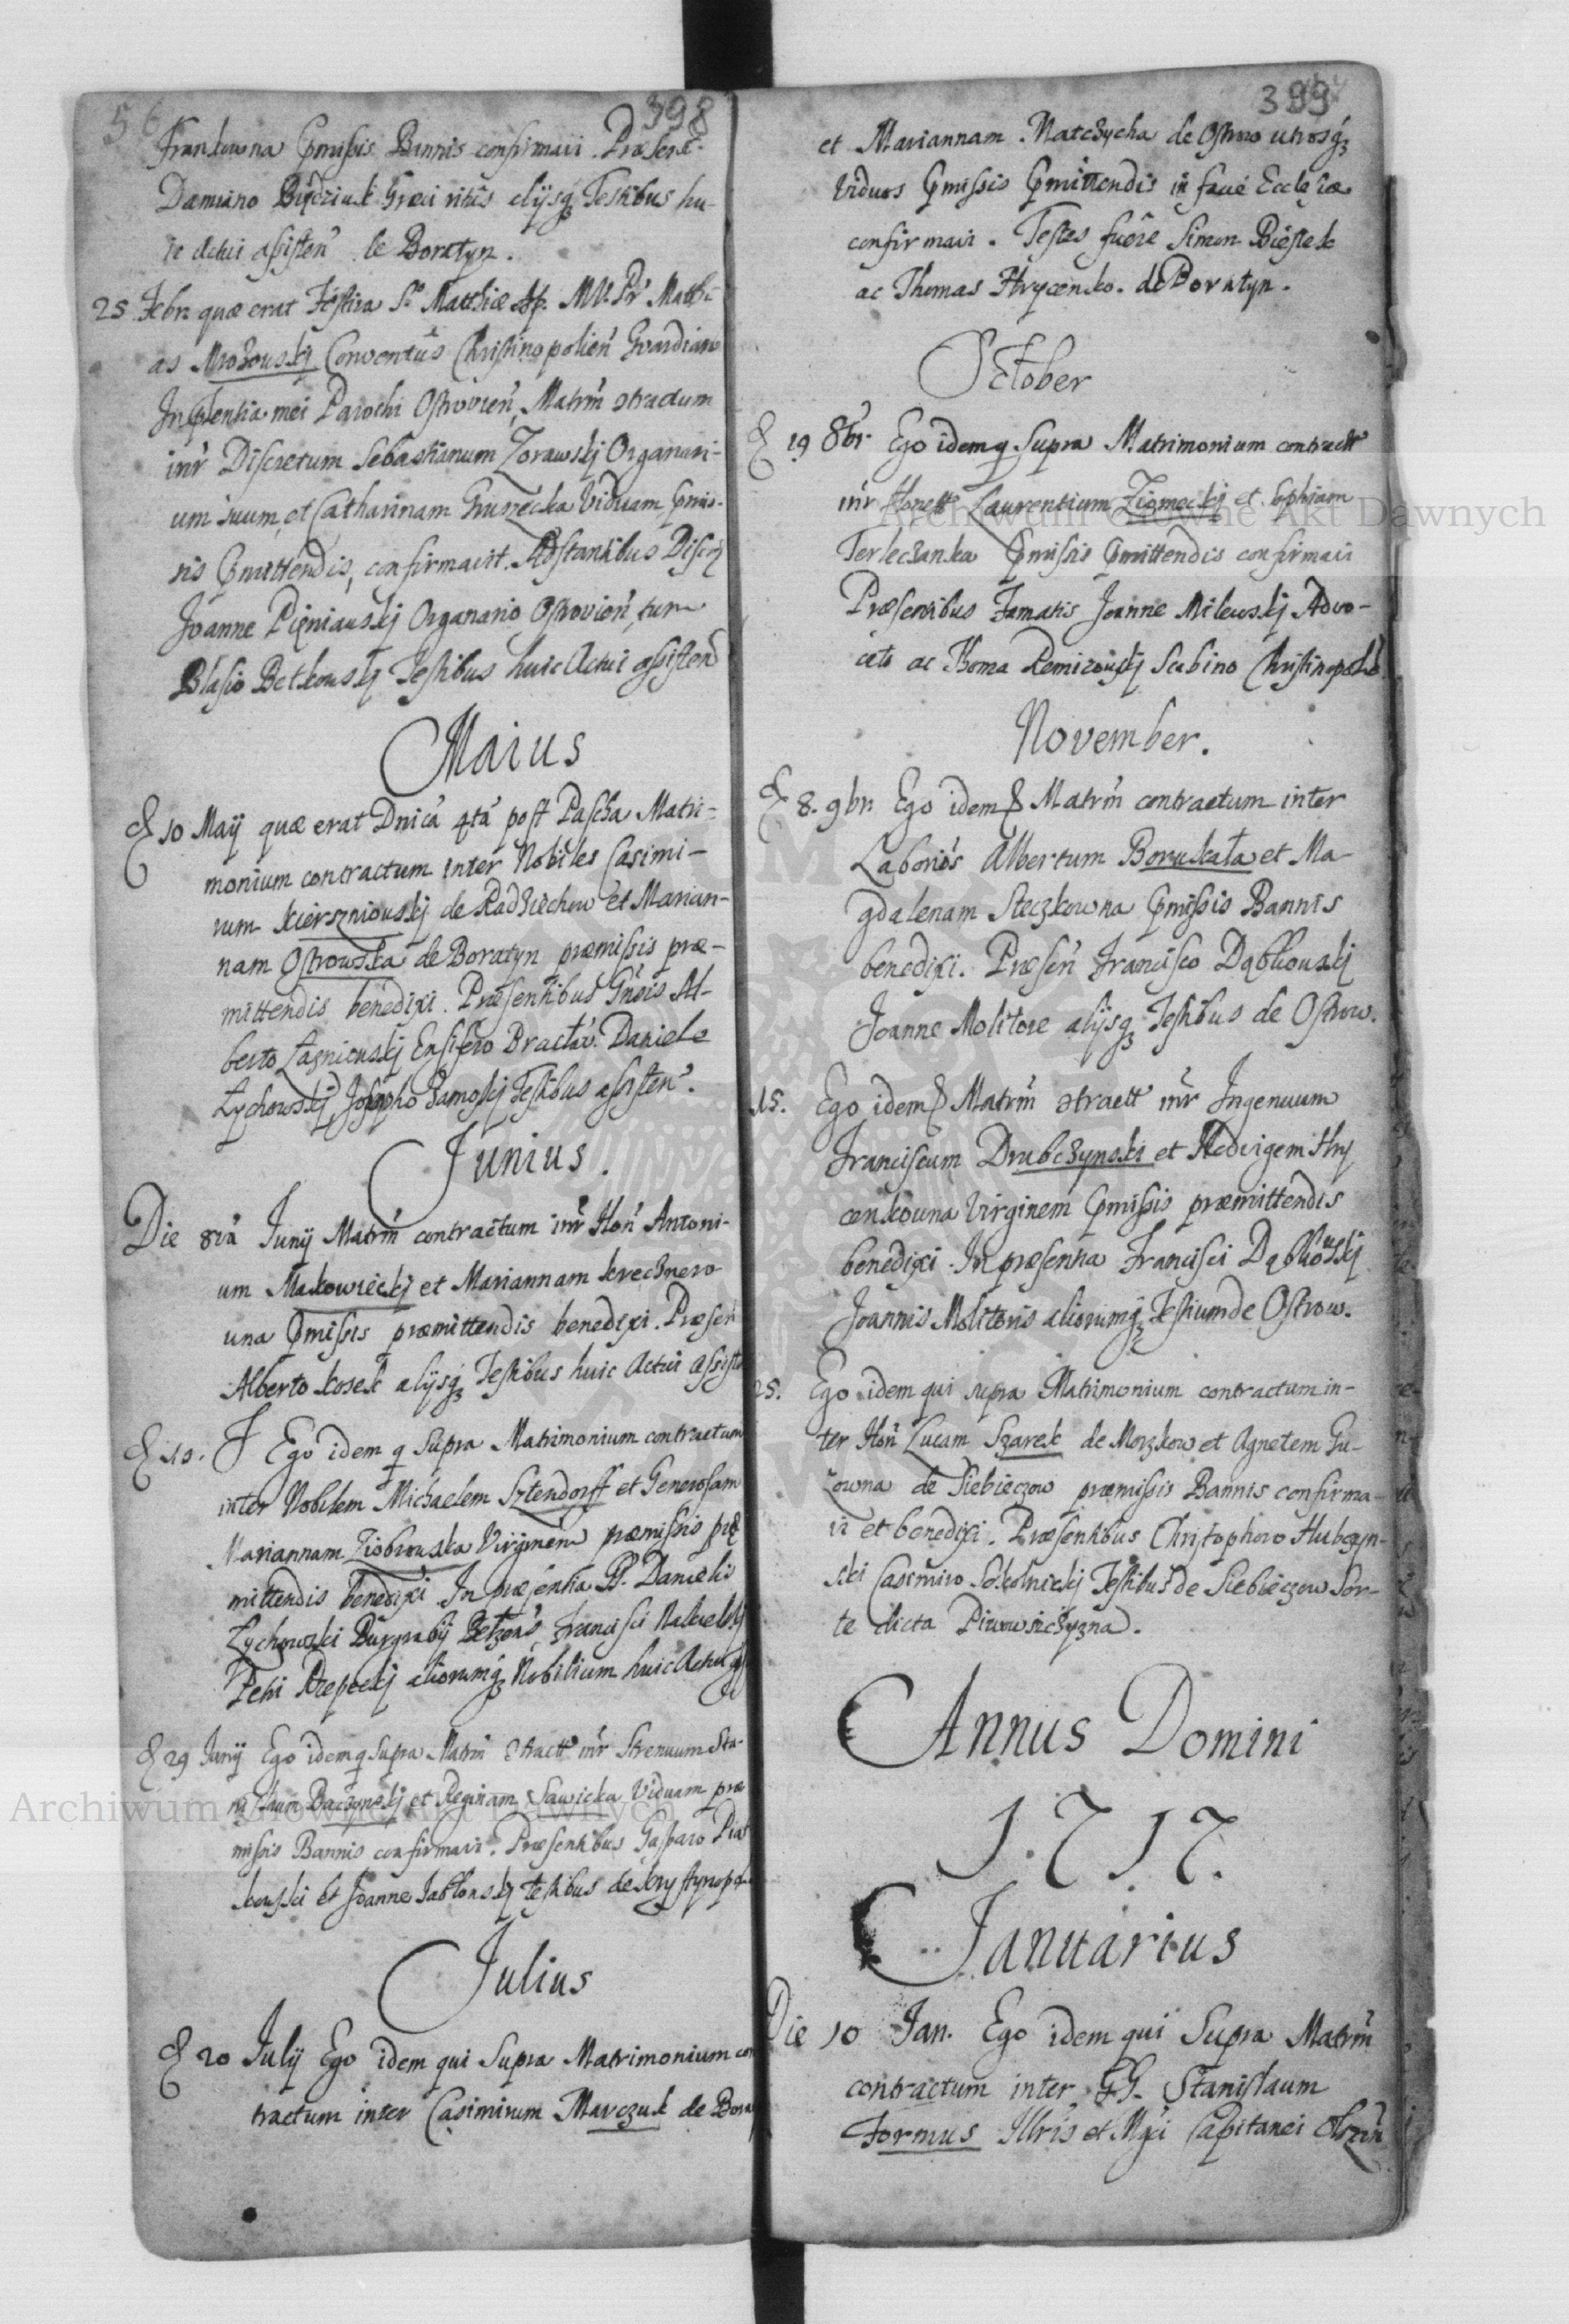 56 398
Frankowna Pmissis Bannis confirmavi. Præsent.
Damiano Græci ritûs alijsq₃ Testibus hu-
ic Actui assisten̄ de Boratyn.
25 Febr. quæ erat Festiva S. Matthiæ Ap. Matthi-
as Mrozowskj Conventûs Christinopolien̄ Gvardian
In Pſentia mei Parochi Ostrovien̄, Matrm̄ ɔtractum
int̄r Discretum Sebastianum Zorawskj Organari-
um suum, et Catharinam Gruszecka Viduam, Pmis-
sis Pmittendis, confirmavit. Adstantibus Discr̄
Joanne Pięniawskj Organario Ostrovien̄, tum
Blasio Betkowskj Testibus huic Actui assisten̄
Maius
D 10 Maij quæ erat Dnicâ 4tâ post Pascha Matri-
monium contractum inter Nobiles Casimi-
rum Kierszniowskj de Radziechow et Marian-
nam Ostrowska de Boratyn præmissis præ-
mittendis benedixi. Præsentibus Gn̄sis Al-
berto Łagniewskj Ensifero Bracłav. Daniele
Łychowskj, Josepho Zamoskj Testibus assisten̄.
Junius.
Die 8vâ Junij Matrm̄ contractum int̄r Hon̄ Antoni-
um Makowieckj et Mariannam Krechnero-
wna Pmissis præmittendis benedixi. Præsen̄
Alberto Kosek alijsq₃ Testibus huic Actui assist
D 10. Ego idem q̄ Supra Matrimonium contractum
inter Nobilem Michaelem Sztendorff et Generosam
Mariannam Ziobrowska Virginem præmissis præ
mittendis benedixi. In præsentia PP. Danielis
Łychowski Burgrabij Bełzen̄s, Francisci
Petri Rzepeckj aliorumq₃ Nobilium huic Actui
D 29 Junij Ego idem q̄ supra Matrm̄ ɔtractt int̄r Strenuum Sta-
nislaum Baczynskj et Reginam Sawicka Viduam præ
missis Bannis confirmavi. Præsentibus Gasparo Piat
kowski et Joanne Jabłonskj testibus de Krystynopol
Julius
D 20 Julij Ego idem qui Supra Matrimonium con
tractum inter Casimirum Marczuk de Bora
399
et Mariannam Matczycha de Ostrow utrosq₃
Viduos Pmissis Pmittendis in facie Ecclesiæ
confirmavi. Testes fuêre Simon Piestek
ac Thomas Hrycenko. de Boratyn.
October
D 19 8br. Ego idem q̄ Supra Matrimonium contractt
int̄r Honett Laurentium Ziomeckj et Sophiam
Terleczanka Pmissis Pmittendis confirmavi
Præsentibus Famatis Joanne Milewskj Advo-
cato ac Thoma Remizowskj Scabino Christinopol
November.
D 8. 9br. Ego idem Matrm̄ contractum inter
Laborios Albertum Borukała et Ma-
gdalenam Steczkowna Pmissis Bannis
benedixi. Præsen̄ Francisco Dąbkowskj
Joanne Molitore alijsq₃ Testibus de Ostrow.
15. Ego idem Matrm̄ ɔtractt int̄r Ingenuum
Franciscum Drubczynski et Hedvigem Hry
cenkowna Virginem Pmissis præmittendis
benedixi. In præsentia Francisci Dąbkowskj
Joannis Molitoris aliorumq₃ Testium de Ostrow.
25. Ego idem qui supra Matrimonium contractum in-
ter Hon̄ Lucam Szarek de Morzkow et Agnetem Gu-
zowna de Siebieczow præmissis Bannis confirma-
vi et benedixi. Præsentibus Christophoro Hubczyn-
ski Casimiro Sokolnickj Testibus de Siebieczow Sor-
te dicta Piwowsczyzna.
Annus Domini
1717.
Januarius
Die 10 Jan. Ego idem qui Supra Matrm̄
contractum inter GG. Stanislaum
Formus Illris et Mgci Capitanei
Archiwum Główne Akt Dawnych
Archiwum Główne Akt Dawnych